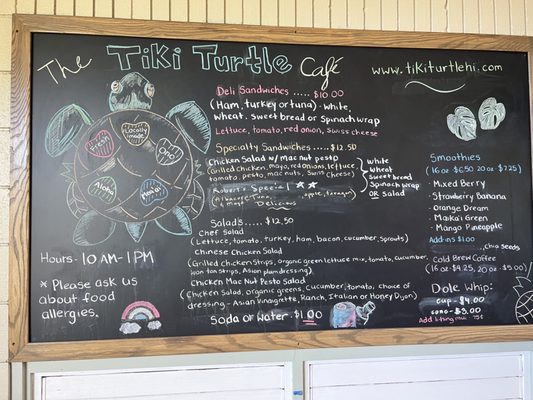 The TiKi TURTLE Café
www.tikiturtlehi.com
Fresh
Locally made!
Ono
Aloha
Maika'i
Hours- 10 AM - 1 PM
* Please ask us
about food
allergies.
Deli Sandwiches ..... $10.00
(Ham, turkey or tuna) - white,
wheat, sweet bread or Spinach wrap
Lettuce, tomato, red onion, Swiss cheese
Specialty Sandwiches ..... $12.50
Chicken Salad w/ mac nut pesto
(Grilled chicken, mayo, red onions, lettuce,
tomato, pesto, mac nuts, Swiss Cheese)
White
Wheat
Sweet bread
Spinach wrap
OR salad
Robert's Special
(Albacore Tuna, apple,
& most Delicious
Salads ..... $12.50
Chef Salad
(Lettuce, tomato, turkey, ham, bacon, cucumber, sprouts)
Chinese Chicken Salad
(Grilled chicken strips, organic green lettuce mix, tomato, cucumber,
won ton strips, Asian plum dressing)
Chicken Mac Nut Pesto Salad
(Chicken Salad, organic greens, cucumber, tomato; choice of
dressing - Asian Vinaigrette, Ranch, Italian or Honey Dijon)
Soda or Water - $1.00
Smoothies
(16 oz $6.50 20 oz $7.25)
• Mixed Berry
• Strawberry Banana
• Orange Dream
• Maika'i Green
• Mango Pineapple
Add-ins $1.00
Chia Seeds
Cold Brew Coffee
(16 oz $4.25, 20 oz $5.00)
Dole Whip:
cup - $4.00
cone - $3.00
Add li hing mui 75¢